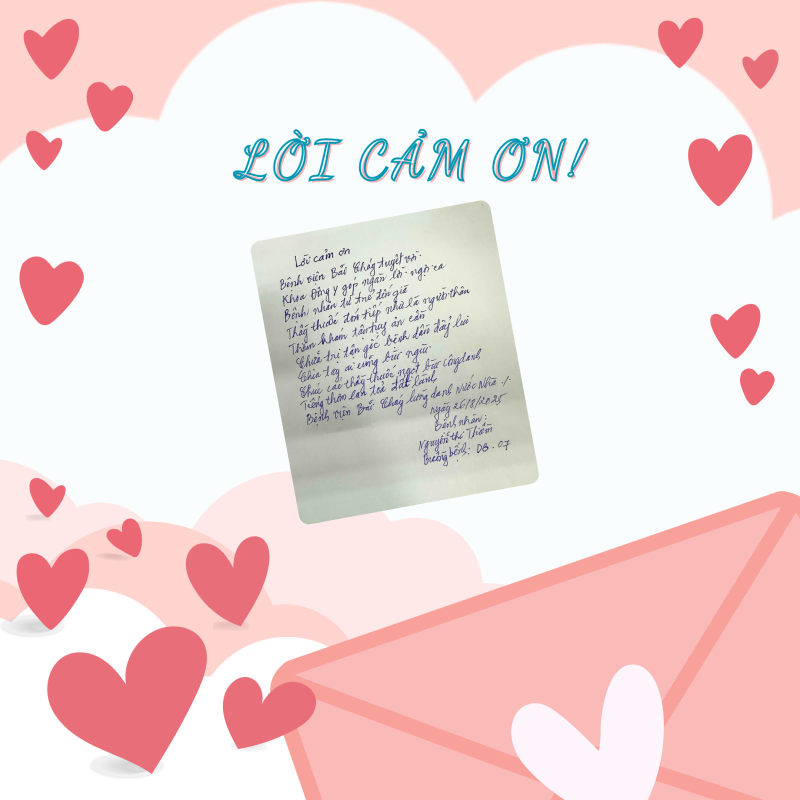 LỜI CẢM ƠN!
Lời cảm ơn
Bệnh viện Bãi Cháy tuyệt vời
Khoa Đông y góp ngàn lời ngợi ca
Bệnh nhân từ trẻ đến già
Thầy thuốc đón tiếp như là người thân
Thăm khám tận tụy ân cần
Chữa trị tận gốc bệnh dần đẩy lui
Chia tay ai cũng bùi ngùi
Chúc các thầy thuốc ngọt bùi công danh
Tiếng thơm lan toả đất lành
Bệnh viện Bãi Cháy lừng danh Nước Nhà
Ngày 26/8/2025
Bệnh nhân:
Nguyễn thị Thiềm
Buồng bệnh: DB. 07